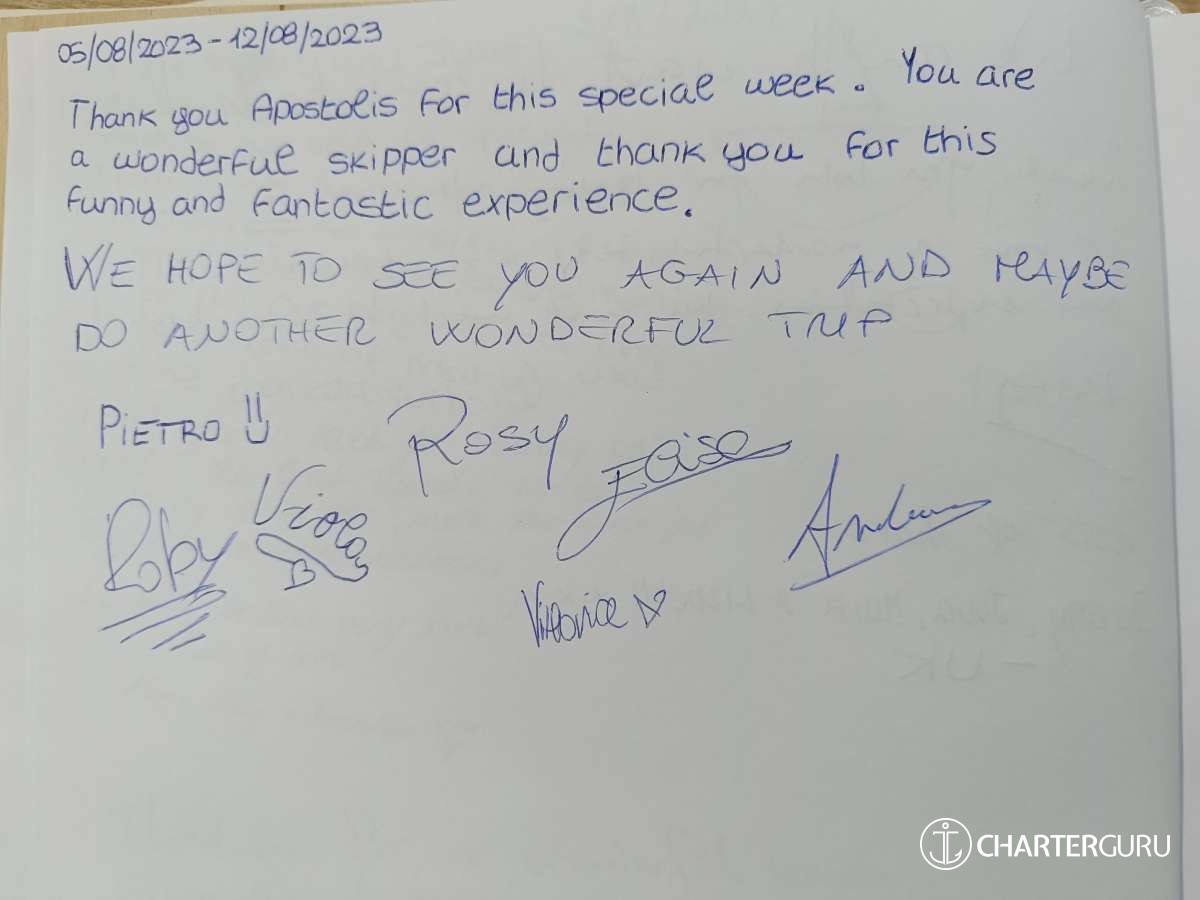 05/08/2023 - 12/08/2023
Thank you Apostolis for this special week. You are
a wonderful skipper and thank you for this
funny and fantastic experience.
WE HOPE TO SEE YOU AGAIN AND MAYBE
DO ANOTHER WONDERFUL TRIP
PIETRO
Rosy
Elisa
Roby
Viola
B
Andrea
CHARTERGURU